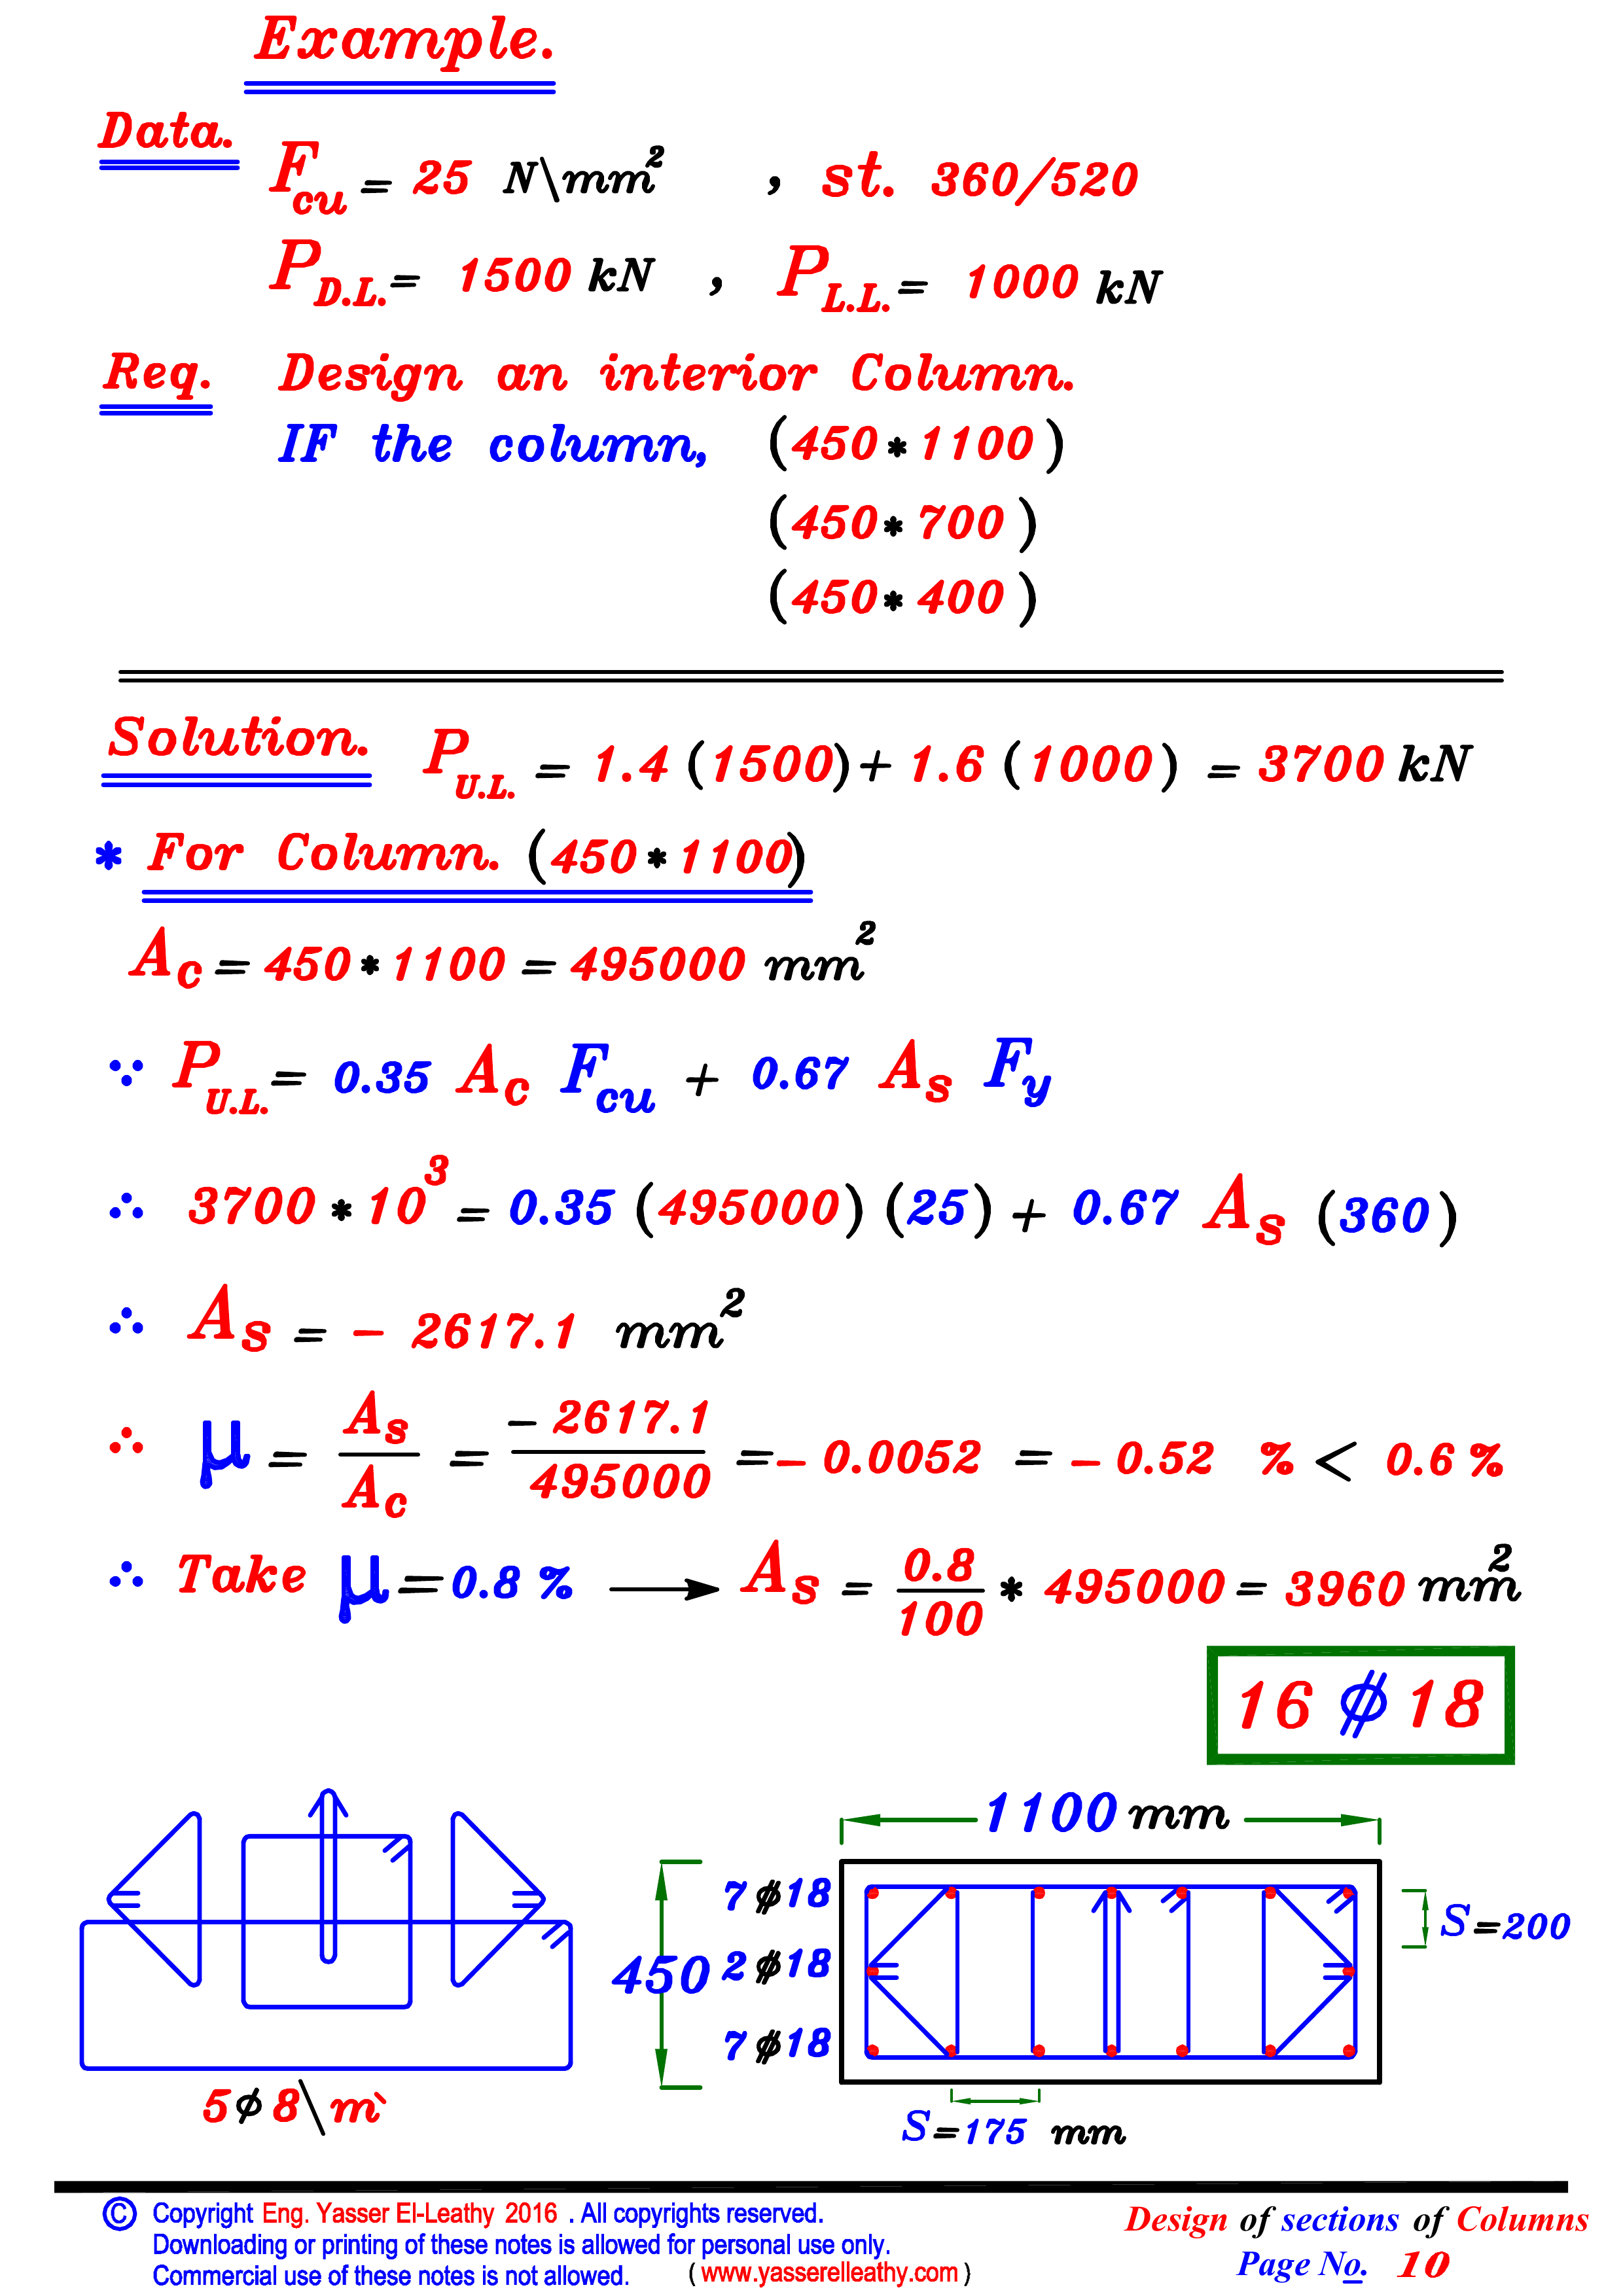 Example.
Data.
F cu = 25 N\mm² , st. 360/520
P D.L. = 1500 kN , P L.L. = 1000 kN
Req. Design an interior Column.
IF the column, (450*1100)
(450*700)
(450*400)
Solution. P U.L. = 1.4 (1500) + 1.6 (1000) = 3700 kN
* For Column. (450*1100)
A c = 450*1100 = 495000 mm²
∵ P U.L. = 0.35 A c F cu + 0.67 A s F y
∴ 3700*10³ = 0.35 (495000) (25) + 0.67 A s (360)
∴ A s = - 2617.1 mm²
∴ μ = A s / A c = - 2617.1 / 495000 = - 0.0052 = - 0.52 % < 0.6 %
∴ Take μ = 0.8 % → A s = 0.8 / 100 * 495000 = 3960 mm²
16 ϕ 18
1100 mm
7 ϕ 18
S = 200
450 2 ϕ 18
7 ϕ 18
5 ϕ 8\m`
S = 175 mm
© Copyright Eng. Yasser El-Leathy 2016 . All copyrights reserved.
Downloading or printing of these notes is allowed for personal use only.
Commercial use of these notes is not allowed. ( www.yasserelleathy.com )
Design of sections of Columns
Page No. 10